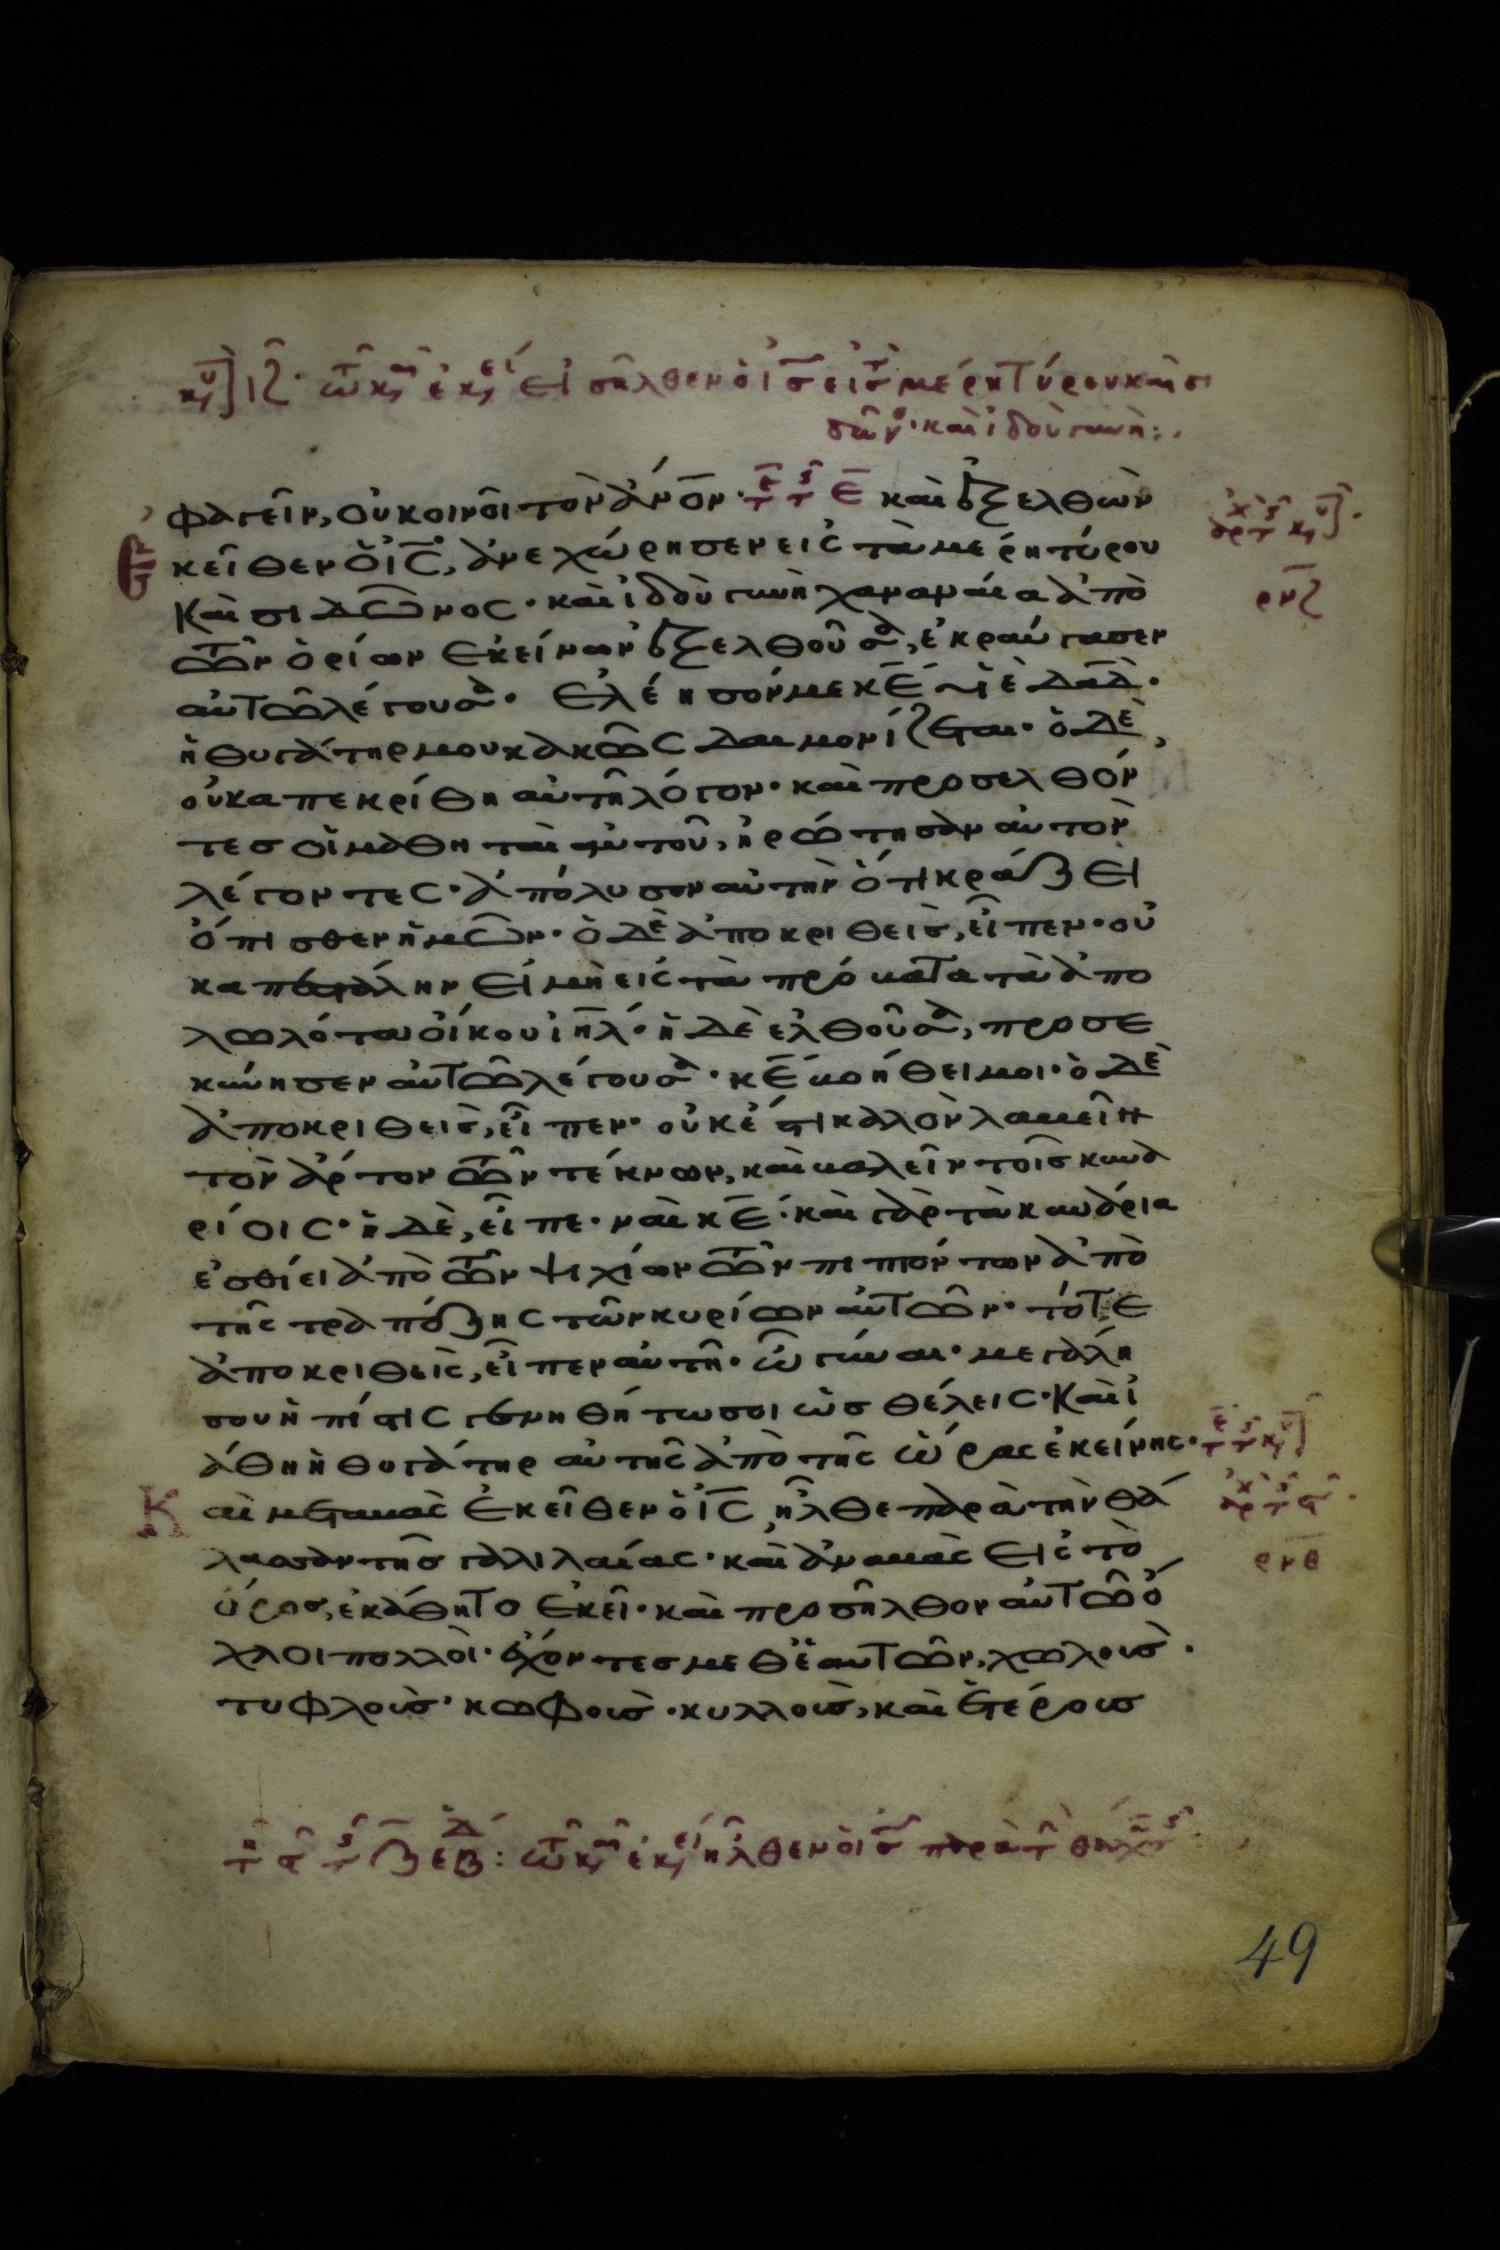 κυ ιζ· τω κ αι εκ ει εἰσῆλθεν ὁ ι̅σ̅ εἰς τ μέρη τύρου καὶ σι
δῶν ο· καὶ ἰδοὺ γυνὴ:·
φαγεῖν, οὐ κοινοῖ τὸν ἄν̅ο̅ν· ε̅ καὶ ἐξελθὼν
κεῖθεν ὁ ἰ̅ς̅, ἀνεχώρησεν εἰς τὰ μέρη τύρου
καὶ σιδῶνος· καὶ ἰδοὺ γυνὴ χαναναία ἀπὸ
τῶν ὁρίων ἐκείνων ἐξελθοῦσα, ἐκραύγασεν
αὐτῶ λέγουσα· ἐλέησόν με κ̅ε̅ υἱὲ δα̅δ̅·
ἡ θυγάτηρ μου κακῶς δαιμονίζεται· ὁ δὲ,
οὐκ απεκρίθη αὐτῆ λόγον· καὶ προσελθόν
τες οἱ μαθηταὶ αὐτοῦ, ἠρώτησαν αὐτὸν
λέγοντες· ἀπόλυσον αὐτὴν ὅτι κράζει
ὄπισθεν ἡμῶν· ὁ δὲ ἀποκριθεὶς, εἶπεν· οὐ
κ απεστάλην εἰ μὴ εἰς τὰ πρόβατα τὰ ἀπο
λωλότα οἴκου ἰ̅η̅λ̅· ἡ δὲ ἐλθοῦσα, προσε
κύνησεν αὐτῶ λέγουσα· κ̅ε̅ βοήθει μοι· ὁ δὲ
ἀποκριθεὶς, εἶπεν· οὐκ ἔστι καλὸν λαβεῖν
τὸν ἄρτον τῶν τέκνων, καὶ βαλεῖν τοῖς κυνα
ρίοις· ἡ δὲ, εἶπε· ναὶ κ̅ε̅· καὶ γὰρ τὰ κυνάρια
ἐσθίει ἀπὸ τῶν ψιχίων τῶν πιπτόντων ἀπὸ
τῆς τραπέζης τῶν κυρίων αὐτῶν· τότε
ἀποκριθεὶς, εἶπεν αὐτῆ· ὦ γύναι· μεγάλη
σου ἡ πίστις γενηθήτω σοι ὡς θέλεις· καὶ ἰ
άθη ἡ θυγάτηρ αὐτῆς ἀπὸ τῆς ὥρας ἐκείνης·
Καὶ μεταβὰς ἐκεῖθεν ὁ ἰ̅ς̅, ἦλθε παρὰ τὴν θά
λασσαν τῆς γαλιλαίας· καὶ ἀναβὰς εἰς τὸ
ὄρος, ἐκάθητο ἐκεῖ· καὶ προσῆλθον αὐτῶ ὄ
χλοι πολλοὶ· ἔχοντες μεθ ἑαυτῶν, χωλους·
τυφλους· κωφους· κυλλους, καὶ ἑτέρους
ρνζ
ρνθ
ἦλθεν ὁ ι̅σ̅ παρὰ τ θαλ
49